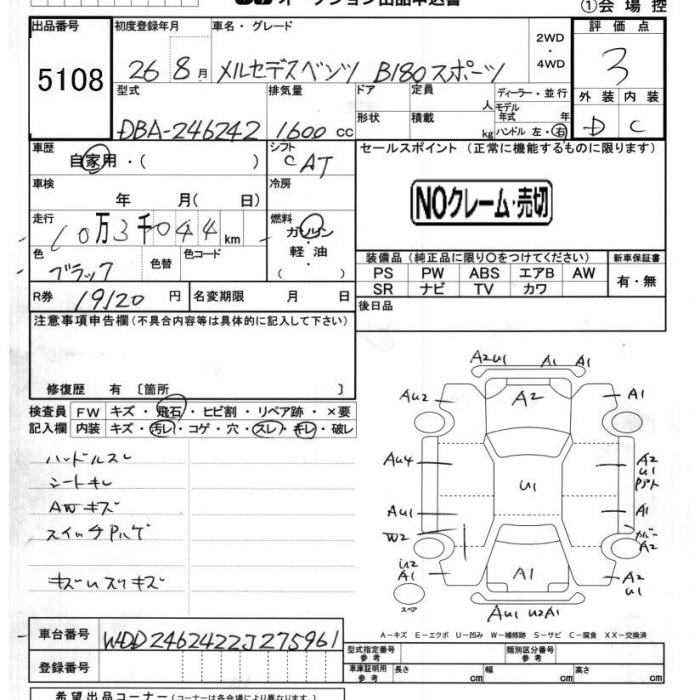 オークション出品申込書
①会場控
出品番号 初度登録年月 車名・グレード 2WD・4WD 評価点
5108
26 8月 メルセデスベンツ B180スポーツ 3
型式 排気量 ドア 定員 人 ディーラー・並行 外装 内装
DBA-246242 1600cc 形状 積載 kg モデル年式 年 ハンドル 左・右 D C
車歴 自家用・( ) シフト CAT セールスポイント (正常に機能するものに限ります)
車検 年 月(日) 冷房
NOクレーム・売切
走行 10万3千044km 燃料 ガソリン・軽油・( )
色 ブラック 色替 色コード
装備品 (純正品に限り〇をつけてください) 新車保証書
PS PW ABS エアB AW 有・無
SR ナビ TV カワ
R券 19120円 名変期限 月 日 後日品
注意事項申告欄 (不具合内容等は具体的に記入して下さい)
修復歴 有 〔箇所 〕
検査員記入欄 FW キズ・飛石・ヒビ割・リペア跡・×要
内装 キズ・汚レ・コゲ・穴・スレ・キレ・破レ
ハンドルスレ
シートキレ
AWキズ
スイッチハゲ
A2U1 A1 A1
AU2 A2 A1
AU4 A2 U1
U1
AU1 A1
W2 カバーA2
U2 A1 A1 A2 U1
スペア
AU1 U2A1
A-キズ E-エクボ U-凹み W-補修跡 S-サビ C-腐食 XX-交換済
車台番号 WDD2462422J275961
登録番号
型式指定番号 参考 類別区分番号 参考
車庫証明用 参考 長さ cm 幅 cm 高さ cm
希望出品コーナー (コーナーは各会場により異なります。)